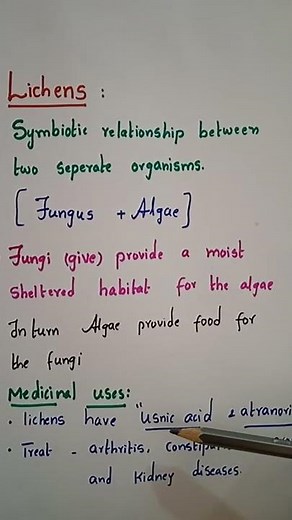 Lichens :
Symbiotic relationship between
two seperate organisms.
[ Fungus + Algae ]
Fungi (give) provide a moist
sheltered habitat for the algae
In turn Algae provide food for
the fungi
Medicinal uses:
• lichens have "usnic acid &
• Treat - arthritis,
and kidney diseases.